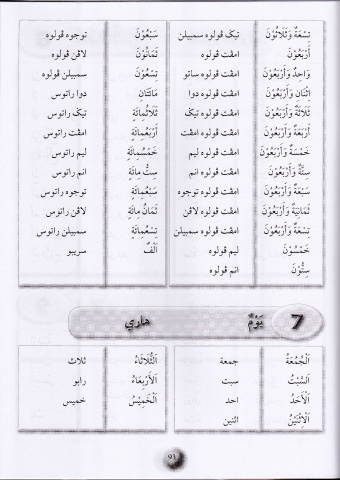 تِسْعَةٌ وَثَلَاثُوْنَ تيݢ ڤولوه سمبيلن
أَرْبَعُوْنَ امڤت ڤولوه
وَاحِدٌ وَأَرْبَعُوْنَ امڤت ڤولوه ساتو
اثْنَانِ وَأَرْبَعُوْنَ امڤت ڤولوه دوا
ثَلَاثَةٌ وَأَرْبَعُوْنَ امڤت ڤولوه تيݢ
أَرْبَعَةٌ وَأَرْبَعُوْنَ امڤت ڤولوه امڤت
خَمْسَةٌ وَأَرْبَعُوْنَ امڤت ڤولوه ليم
سِتَّةٌ وَأَرْبَعُوْنَ امڤت ڤولوه انم
سَبْعَةٌ وَأَرْبَعُوْنَ امڤت ڤولوه توجوه
ثَمَانِيَةٌ وَأَرْبَعُوْنَ امڤت ڤولوه لاڤن
تِسْعَةٌ وَأَرْبَعُوْنَ امڤت ڤولوه سمبيلن
خَمْسُوْنَ ليم ڤولوه
سِتُّوْنَ انم ڤولوه
سَبْعُوْنَ توجوه ڤولوه
ثَمَانُوْنَ لاڤن ڤولوه
تِسْعُوْنَ سمبيلن ڤولوه
مِائَتَانِ دوا راتوس
ثَلَاثُمِائَةٍ تيݢ راتوس
أَرْبَعُمِائَةٍ امڤت راتوس
خَمْسُمِائَةٍ ليم راتوس
سِتُّ مِائَةٍ انم راتوس
سَبْعُمِائَةٍ توجوه راتوس
ثَمَانُ مِائَةٍ لاڤن راتوس
تِسْعُمِائَةٍ سمبيلن راتوس
أَلْفٌ سريبو
7 يَوْمٌ هاري
اَلْجُمُعَةُ جمعة
اَلسَّبْتُ سبت
اَلْأَحَدُ احد
اَلْإِثْنَيْنُ اثنين
اَلثُّلَاثَاءُ ثلاث
اَلْأَرْبِعَاءُ رابو
اَلْخَمِيْسُ خميس
٩١